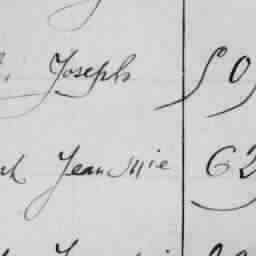 Joseph 50
Jean Mie 62